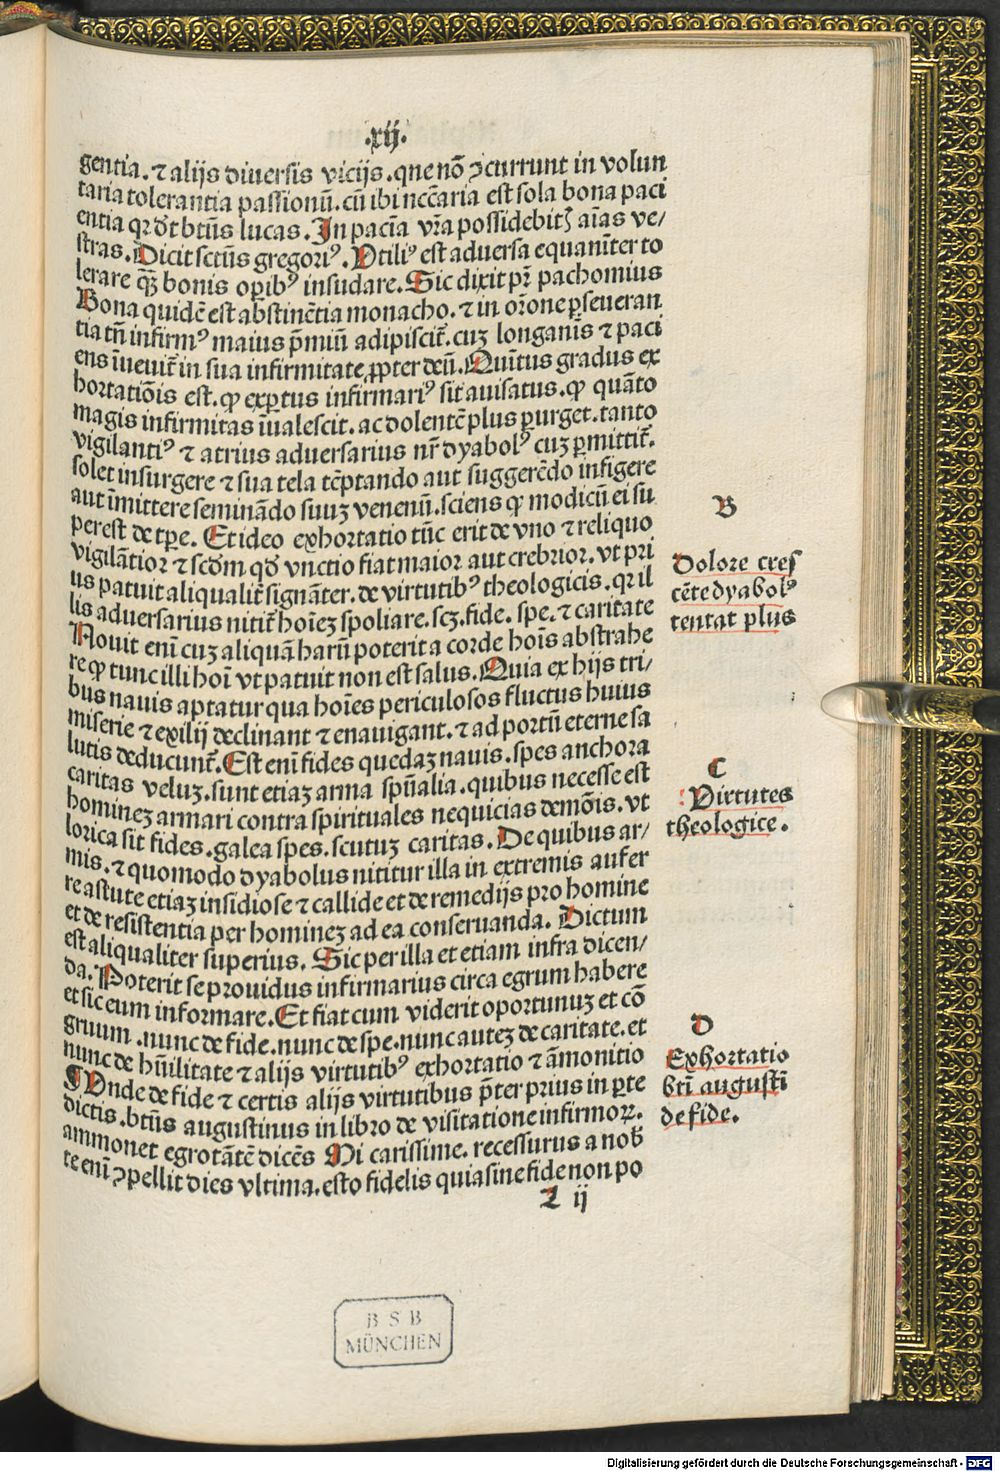 .xij.
gentia. ⁊ alijs diuersis vicijs. que nō ꝯcurrunt in volun
taria tolerantia passionū. cū ibi nccāria est sola bona paci
entia qꝛ dt̄ btūs lucas. In pacīa vrā possidebitꝭ aīas ve⸗
stras. Dicit sctūs gregoriꝰ. Vtiliꝰ est aduersa equanīter to
lerare qꝫ̄ bonis oꝑibꝰ insudare. Sic dixit pr̄ pachomius
Bona quidē est abstinētia monacho. ⁊ in orōne ꝑseueran
tia tn̄ infirmꝰ maius p̄miū adipiscit̄. cuꝫ longanīs ⁊ paci
ens īuenit̄ in sua infirmitate ꝓpter deū. Quītus gradus ex
hortatiōis est. ꝙ exꝑtus infirmariꝰ sit auisatus. ꝙ quāto
magis infirmitas īualescit. ac dolentē plus ꝑurget. tanto
vigilantiꝰ ⁊ atrius aduersarius nr̄ dyabolꝰ cuꝫ ꝑmittit̄.
solet insurgere ⁊ sua tela tēptando aut suggerēdo infigere
aut īmittere semināndo suuꝫ venenū. sciens ꝙ modicū ei su
perest de tꝑe. Et ideo exhortatio tūc erit de vno ⁊ reliquo
vigilātior ⁊ scdm̄ qd̄ vnctio fiat maior aut crebrior. vt pri
us patuit aliqualit̄ signāter. de virtutibꝰ theologicis. qꝛ il
lis aduersarius nitit̄ hoīeꝫ spoliare. scꝫ. fide. spe. ⁊ caritate
Nouit enī cuꝫ aliquā harū poterit a corde hoīs abstrahe
re ꝙ tunc illi hoī vt patuit non est salus. Quia ex hijs tri⸗
bus nauis aptatur qua hoīes periculosos fluctus huius
miserie ⁊ exilij declinant ⁊ enauigant. ⁊ ad portū eterne sa
lutis deducunt̄. Est enī fides quedaꝫ nauis. spes anchora
caritas veluꝫ. sunt etiaꝫ arma spūalia. quibus necesse est
homineꝫ armari contra spirituales nequicias demōis. vt
lorica sit fides. galea spes. scutuꝫ caritas. De quibus ar⸗
mis. ⁊ quomodo dyabolus nititur illa in extremis aufer
re astute etiaꝫ insidiose ⁊ callide et de remedijs pro homine
et de resistentia per homineꝫ ad ea conseruanda. Dictum
est aliqualiter superius. Sic per illa et etiam infra dicen⸗
da. Poterit se prouidus infirmarius circa egrum habere
et sic eum informare. Et fiat cum viderit oportunuꝫ et cō
gruum. nunc de fide. nunc de spe. nunc auteꝫ de caritate. et
nunc de hūilitate ⁊ alijs virtutibꝰ exhortatio ⁊ āmonitio
¶ Vnde de fide ⁊ certis alijs virtutibus p̄ter prius in ꝑte
dictis. btūs augustinus in libro de visitatione infirmoꝝ.
ammonet egrotātē dicēs Mi carissime. recessurus a nob̄
te enī ꝯpellit dies vltima. esto fidelis quia sine fide non po
2 ij
B
Dolore cres
cēte dyabolꝰ
tentat plus
C
Virtutes
theologice.
D
Exhortatio
btī augustī
de fide.
BSB
MÜNCHEN
Digitalisierung gefördert durch die Deutsche Forschungsgemeinschaft - DFG